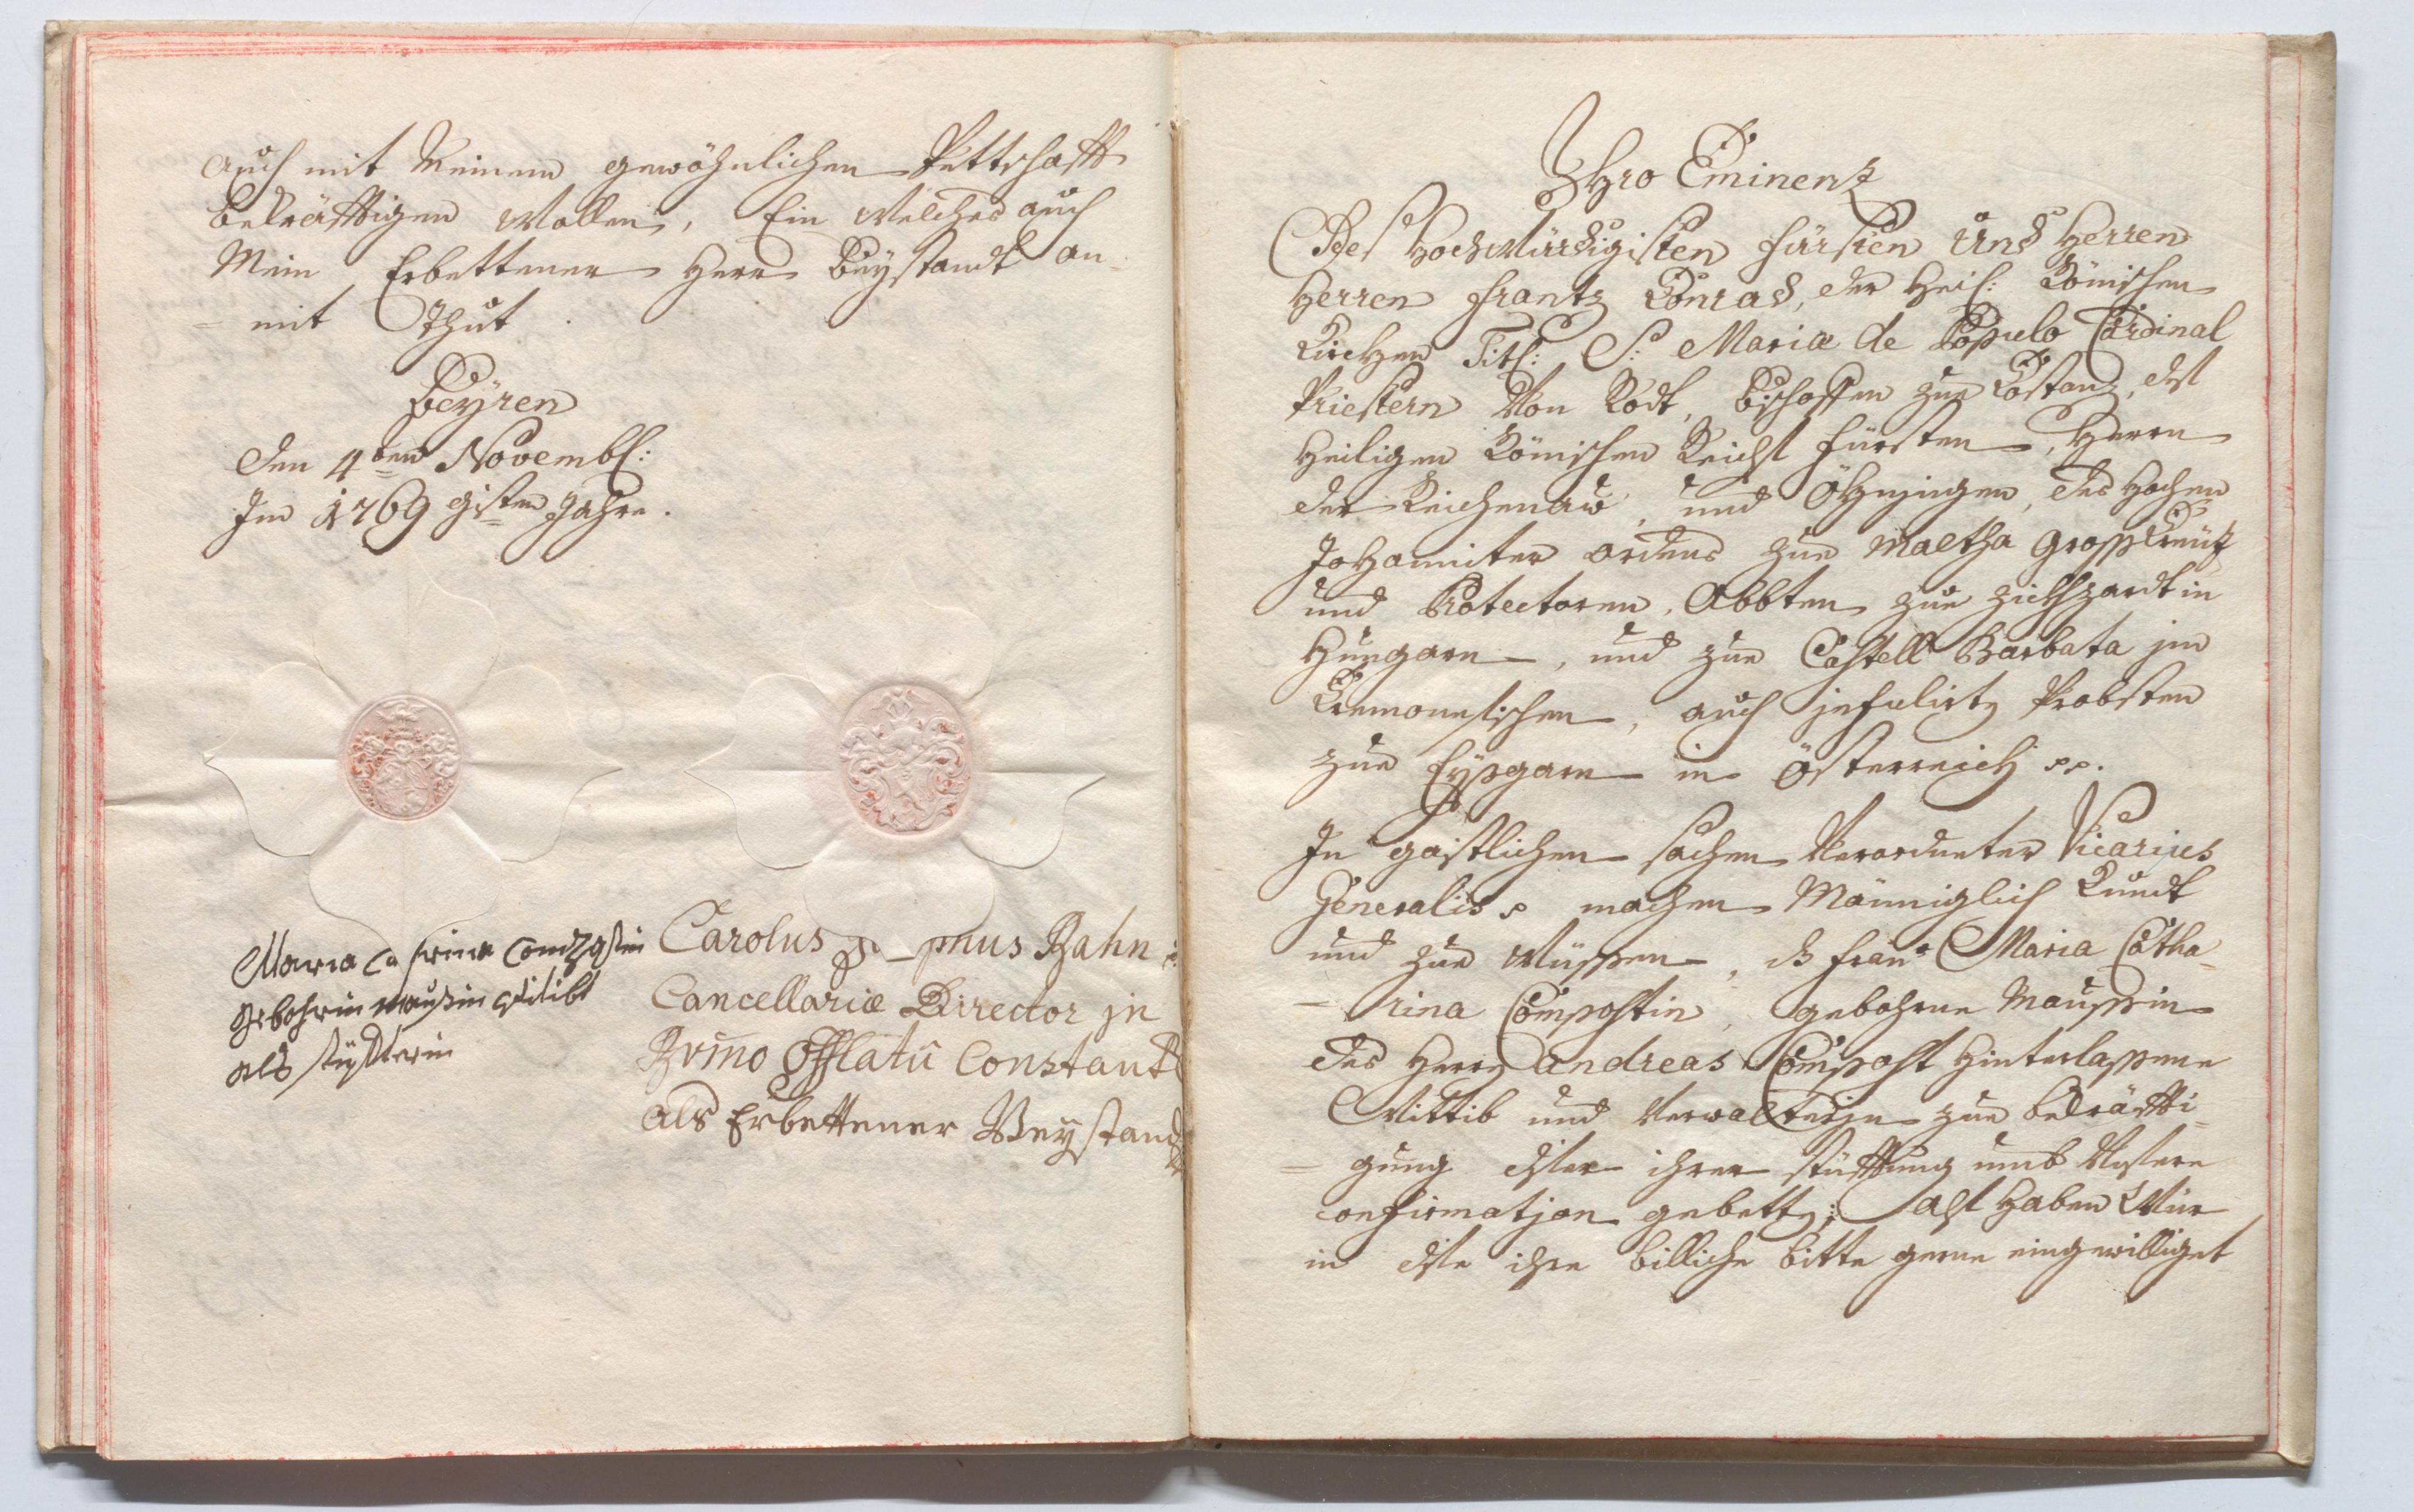 auch mit Meinem gewöhnlichen Pettschafft
bekräfftigen wollen, Ein welches auch
Mein Erbettener Herr Beystandt an
= mit Thut.
Beÿren
den 4ten Novembr:
Im 1769 gisten Jahre.
Maria Ca
gebohrin
als stüffterin
Carolus Bahn
Cancellariæ Director in
Constant
als Erbettener Beÿstand
Ihro Eminenz
Des Hochwürdigisten fürsten Und Herren
Herren Frantz Conrad, der Heil: Römischen
Kirchen Titl: S: Mariæ de Populo Cardinal
Priestern Von Rodt, Bischoffen zue Costanz, des
Heiligen Römischen Reichs fürsten, Herrn
der Reichenaw, und Öhningen, des Hochen
Johanniter ordens zue Maltha Grosskreütz
und Protectoren, Abbten zue in
Hungarn, und zue Castell Barbata im
Cremonesischen, auch infulirten Probsten
zue Eÿsgarn in Österreich pp.
In gaistlichen sachen Verordneter Vicarius
Generalis p machen Männiglich Kundt
und zue wüssen, ds frau Maria Catha
= rina Compostin, gebohrne Maussin
des Herrn Andreas Compost Hinterlassene
Wittib und Verwalterin zue bekräffti
= gung diser ihrer stüfftung umb Unsere
confirmation gebetten; Alss haben Wür
in dise ihre billiche bitte gerne eingewilliget